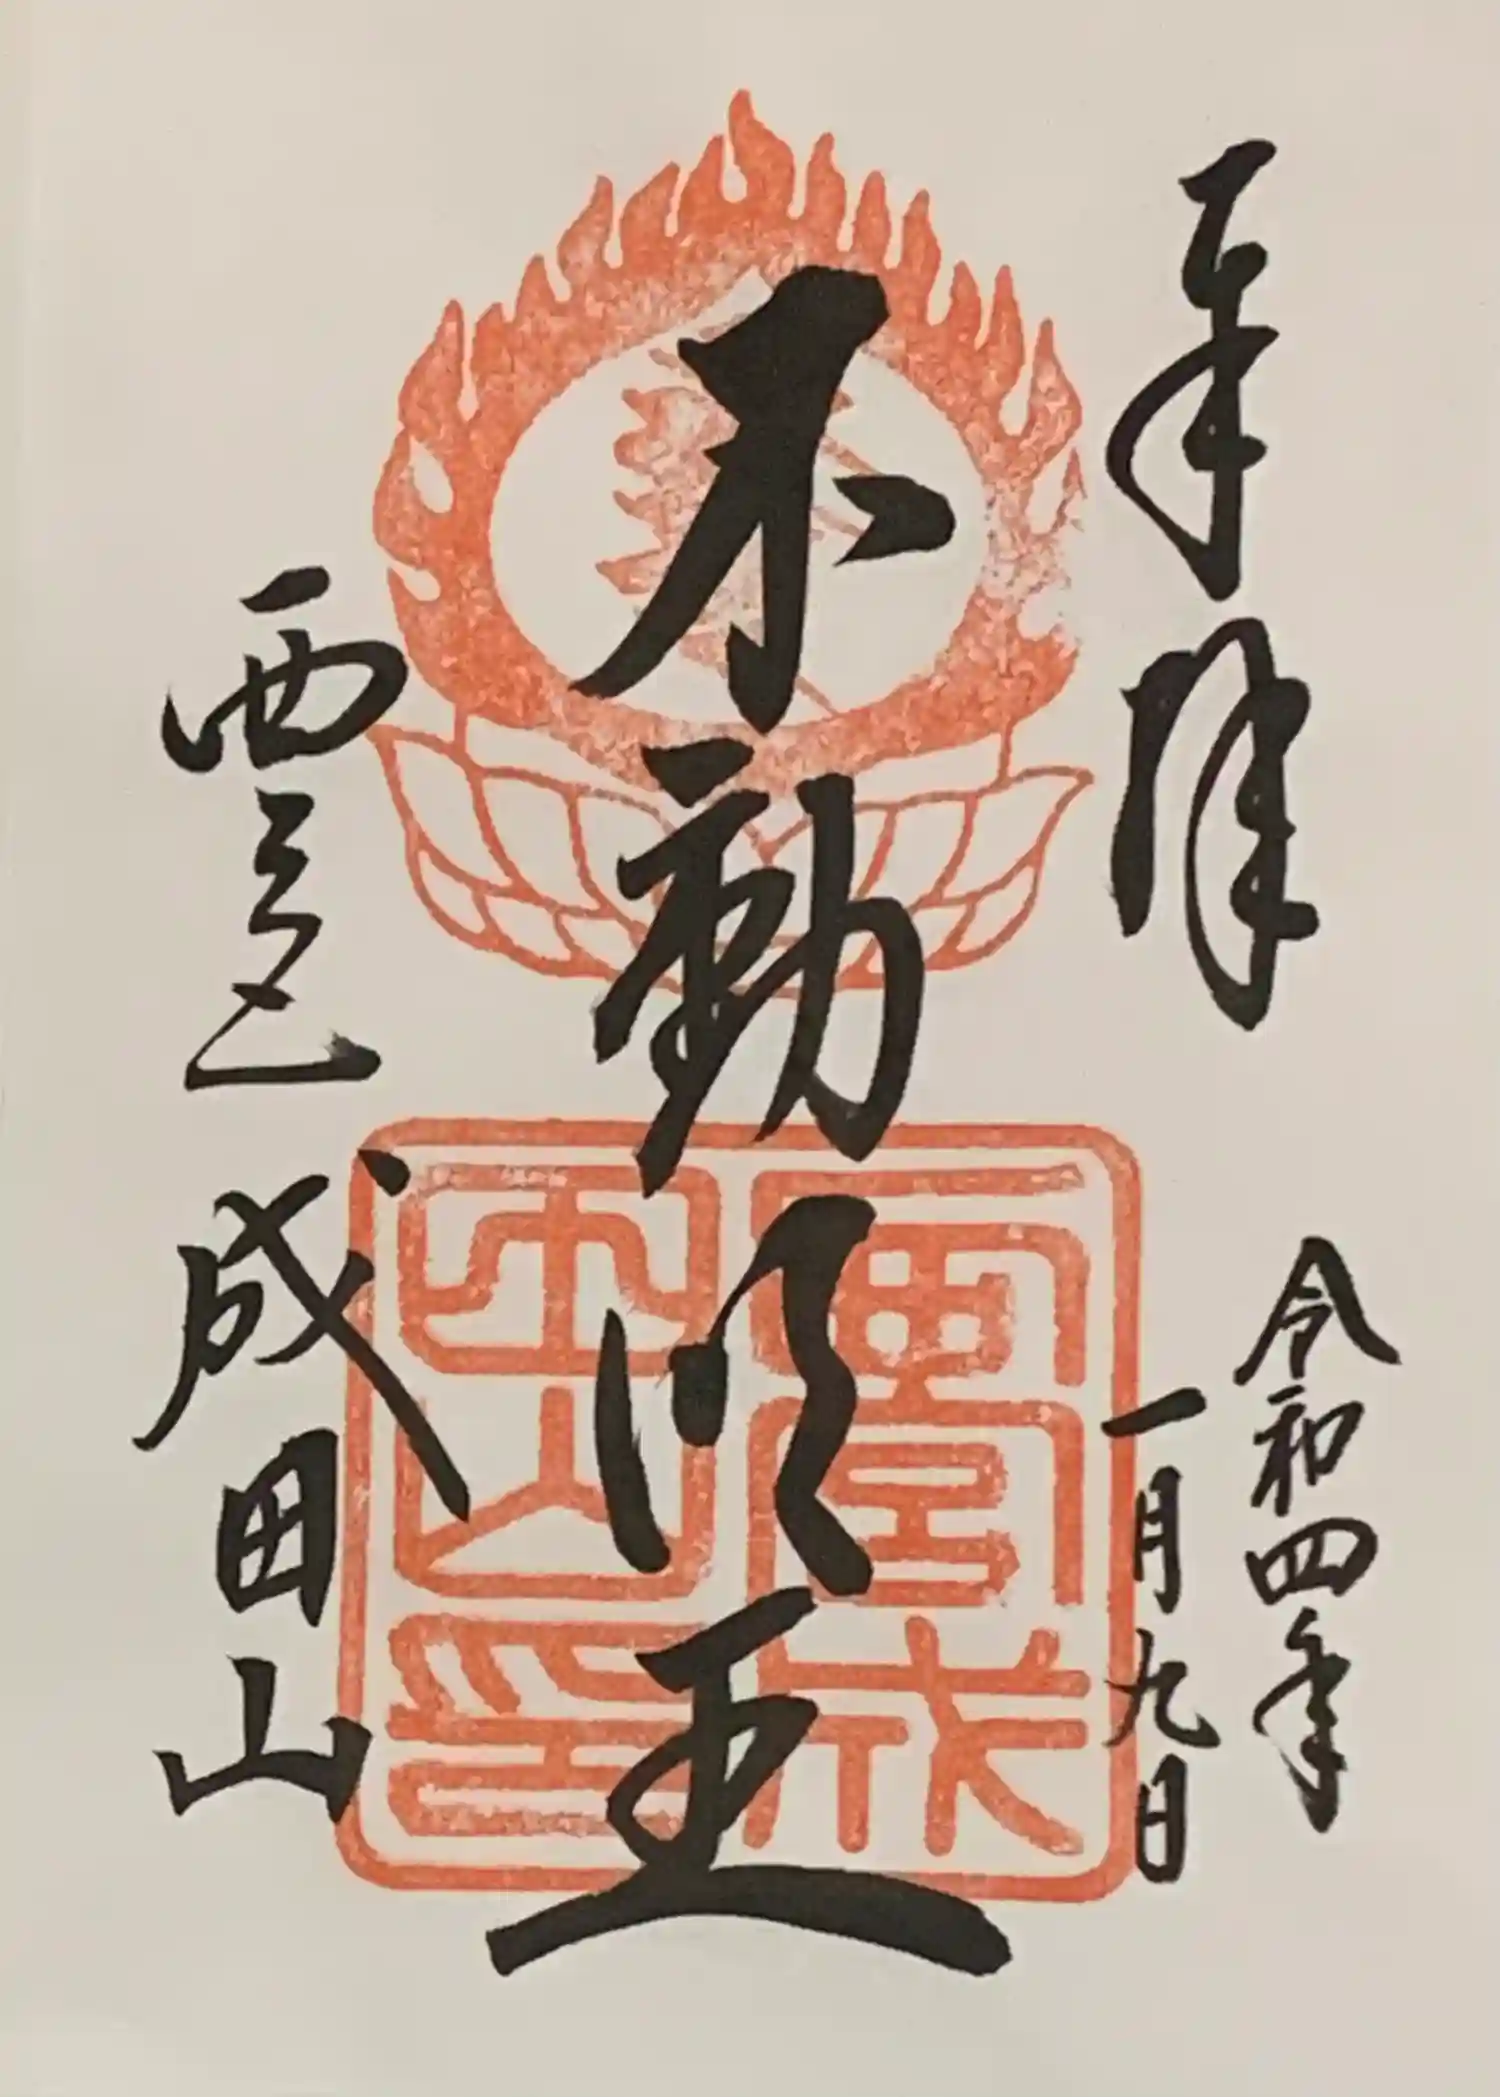 奉拝
令和四年
一月九日
不動明王
成田山
成
田山印